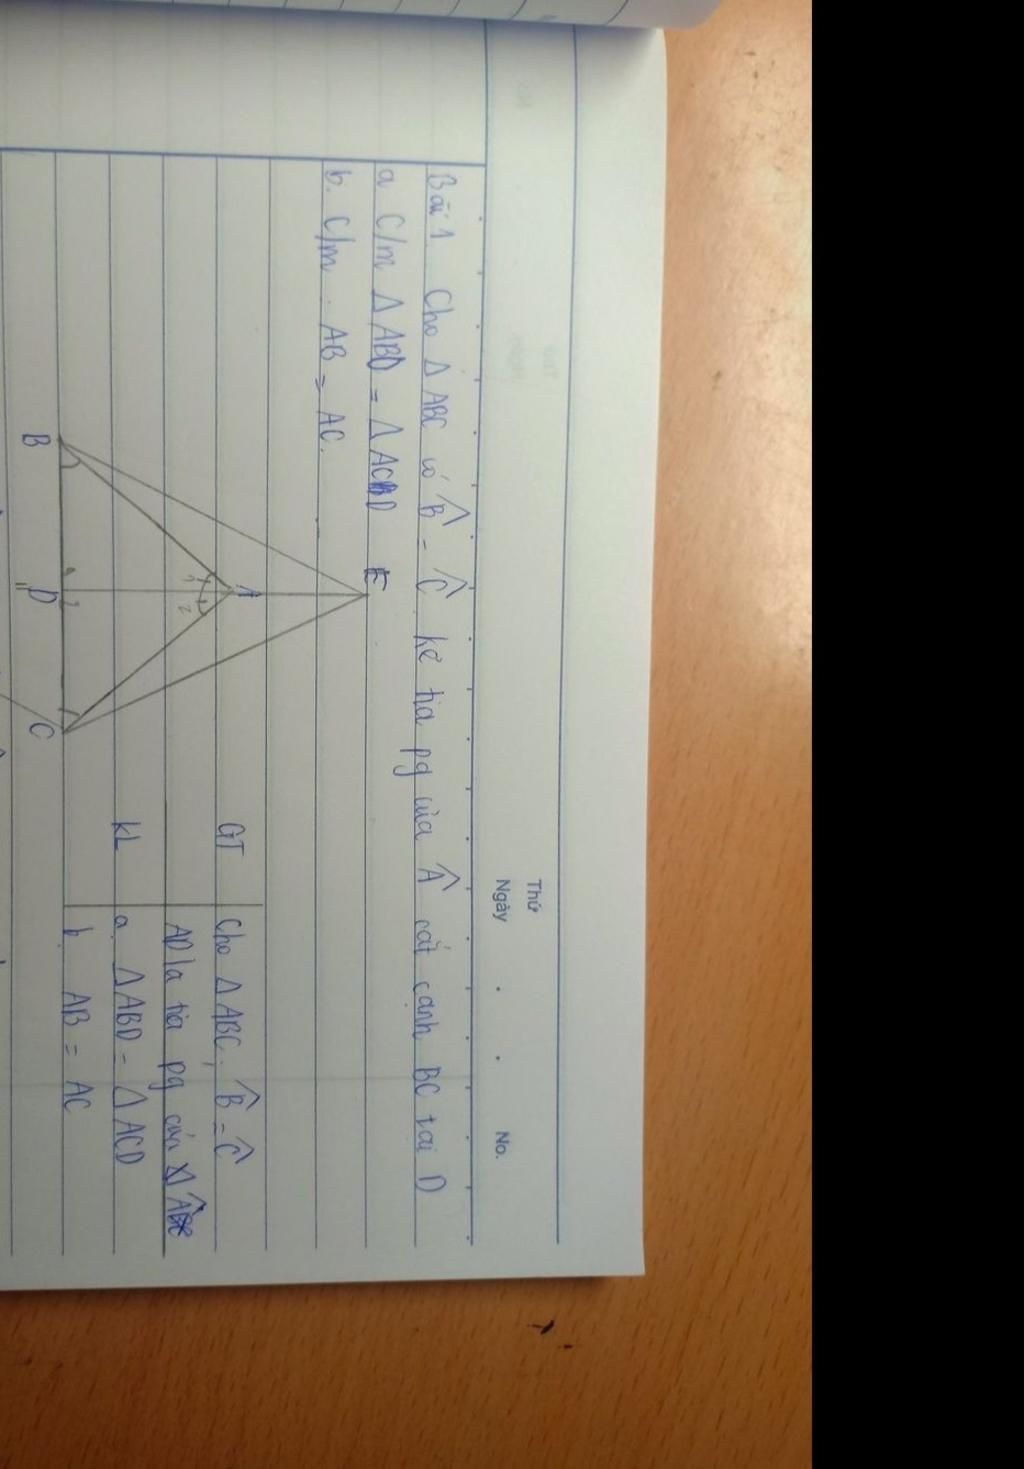 Thứ
Ngày . . No.
Bài 1. Cho Δ ABC có B̂ = Ĉ kẻ tia pg của Â cắt cạnh BC tại D
a. C/m Δ ABD = Δ ACD
b. C/m . AB = AC.
E
A
1 2
B D C
GT Cho Δ ABC, B̂ = Ĉ
AD là tia pg của Â
KL a. Δ ABD = Δ ACD
b. AB = AC